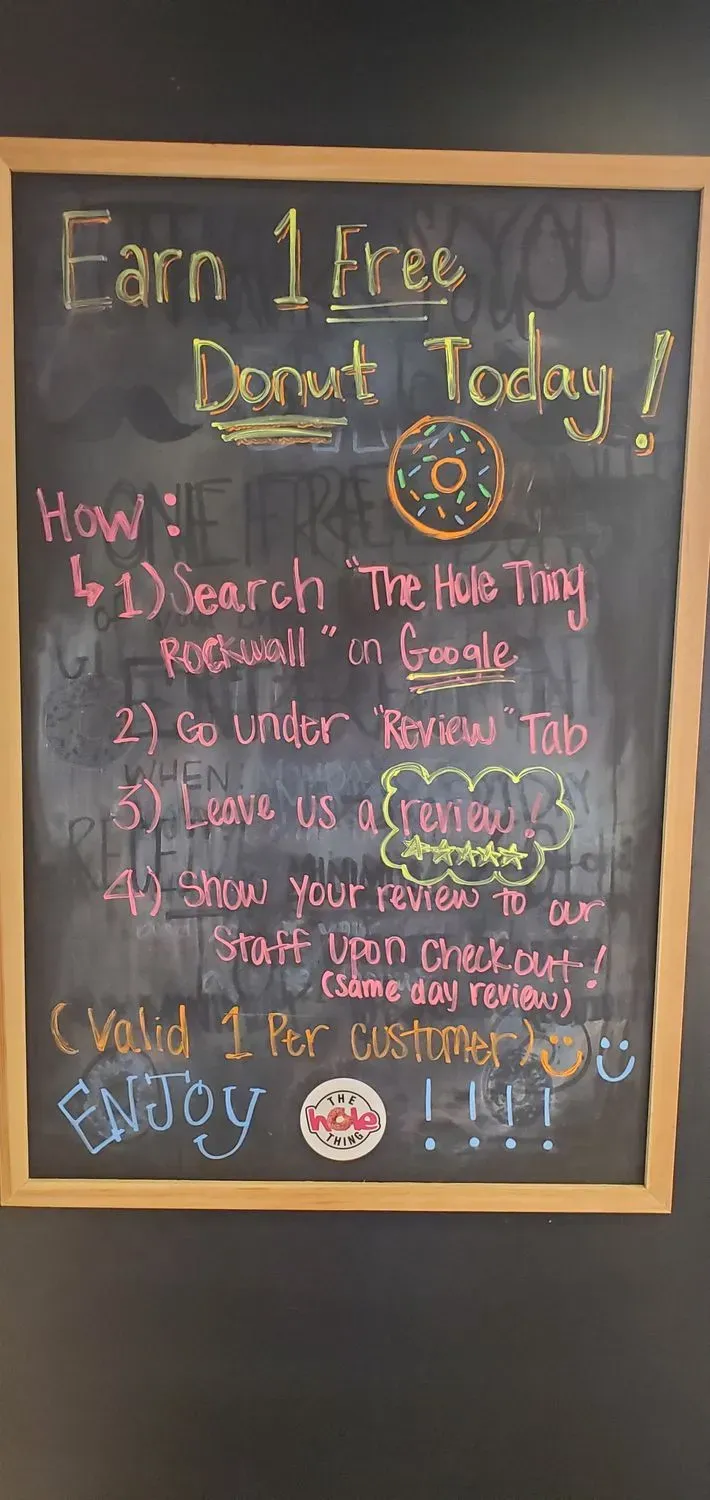 Earn 1 Free
Donut Today!
How:
1) Search "The Hole Thing
Rockwall" on Google
2) Go under "Review" Tab
3) Leave us a review!
4) Show your review to our
Staff upon checkout!
(same day review)
(Valid 1 Per customer)
ENJOY !!!!
THE
hole
THING